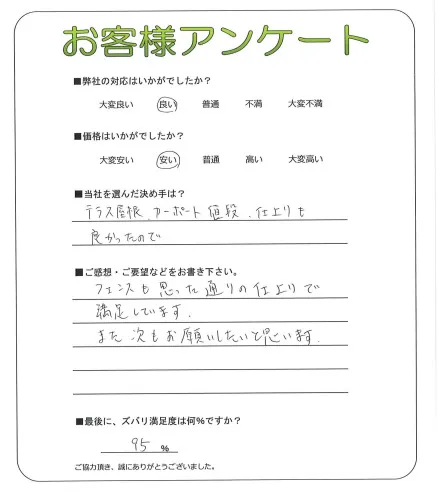 お客様アンケート
■弊社の対応はいかがでしたか？
大変良い 良い 普通 不満 大変不満
■価格はいかがでしたか？
大変安い 安い 普通 高い 大変高い
■当社を選んだ決め手は？
テラス屋根、カーポート値段、仕上りも
良かったので
■ご感想・ご要望などをお書き下さい。
フェンスも思った通りの仕上りで
満足しています。
また次もお願いしたいと思います.
■最後に、ズバリ満足度は何%ですか？
95 %
ご協力頂き、誠にありがとうございました。